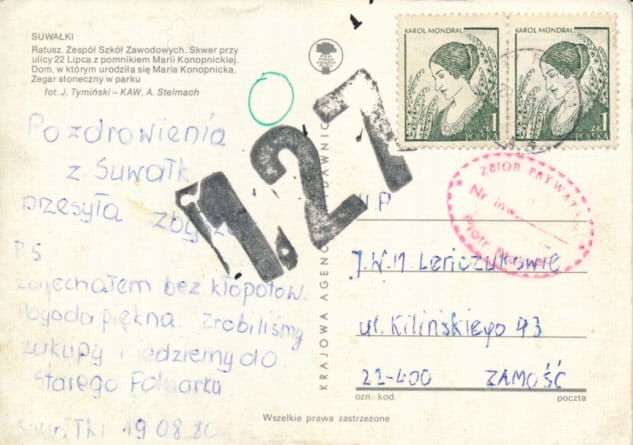 SUWAŁKI
Ratusz. Zespół Szkół Zawodowych. Skwer przy
ulicy 22 Lipca z pomnikiem Marii Konopnickiej.
Dom, w którym urodziła się Maria Konopnicka.
Zegar słoneczny w parku
fot. J. Tymiński – KAW, A. Stelmach
Pozdrowienia
z Suwałk
przesyła
PS
Zajechałem bez kłopotów.
Pogoda piękna. Zrobiliśmy
zakupy i jedziemy do
Starego Folwarku
19 08
127
KRAJOWA AGENCJA
KAROL MONDRAL
1 zł
KAROL MONDRAL
1 zł
ZBIÓR PRYWATNY
Nr inw.
Piotr
W.P
J.W.M Leńczukowie
ul. Kilińskiego 43
22-400 ZAMOŚĆ
ozn. kod. poczta
Wszelkie prawa zastrzeżone